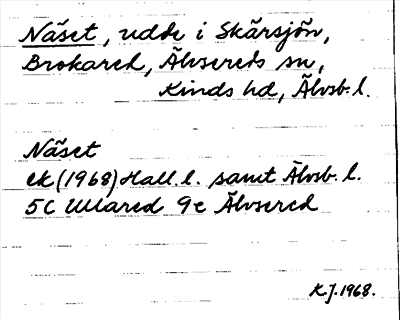 Näset, udde i Skärsjön,
Brokared, Älvsereds sn,
Kinds hd, Älvsb. l.
Näset
ek (1968) Hall. l. samt Älvsb. l.
5C Ullared 9e Älvsered
K.J. 1968.